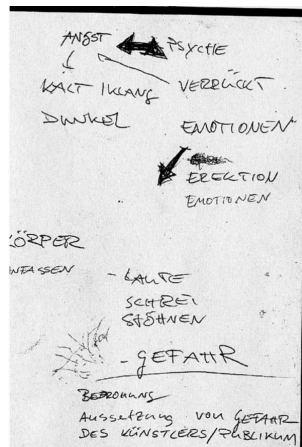 ANGST PSYCHE
KALT / KLANG VERRÜCKT
DUNKEL EMOTIONEN
EREKTION
EMOTIONEN
KÖRPER
ANFASSEN
- LAUTE
SCHREI
STÖHNEN
- GEFAHR
BEDROHUNG
AUSSETZUNG VON GEFAHR
DES KÜNSTLERS/PUBLIKUM